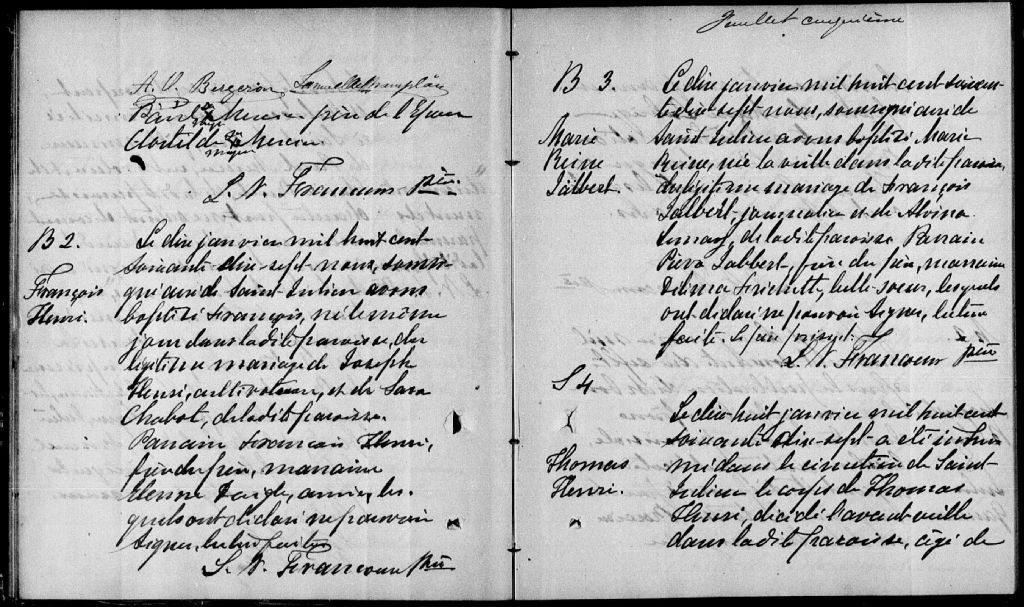 A. O. Bergeron,
père de l'Epoux
Clotilde Mercier
L. N. Francoeur Ptre
B 2.
François
Henri.
Le dix janvier mil huit cent
soixante-dix-sept nous, soussi-
gné curé de Saint Julien avons
baptisé François, né le même
jour dans ladite paroisse, du
légitime mariage de Joseph
Henri, cultivateur, et de Sara
Chabot, de ladite paroisse.
Parrain François Henri,
frère du père, marraine
amie, les-
quels ont déclaré ne pouvoir
signer, lecture faite.
L. N. Francoeur Ptre
feuillet cinquième
B 3.
Marie
Reine
Jalbert.
Le dix janvier mil huit cent soixan-
te-dix-sept nous, soussigné curé de
Saint Julien avons baptisé Marie
Reine, née la veille dans ladite paroisse,
du légitime mariage de François
Jalbert, journalier et de Alvina
de ladite paroisse. Parrain
Pierre Jalbert, frère du père, marraine
belle-soeur, lesquels
ont déclaré ne pouvoir signer, lecture
faite. Le père présent.
L. N. Francoeur Ptre
S 4
Thomas
Henri.
Le dix huit janvier mil huit cent
soixante-dix-sept a été inhu-
mé dans le cimetière de Saint-
Julien le corps de Thomas
Henri, décédé l'avant-veille
dans ladite paroisse, âgé de